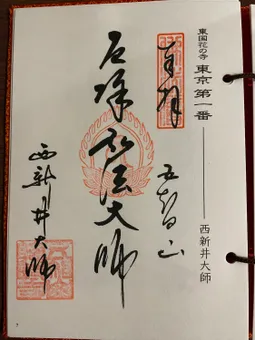 東国花の寺 東京第一番 西新井大師
奉拝
五智山
厄除弘法大師
西新井大師